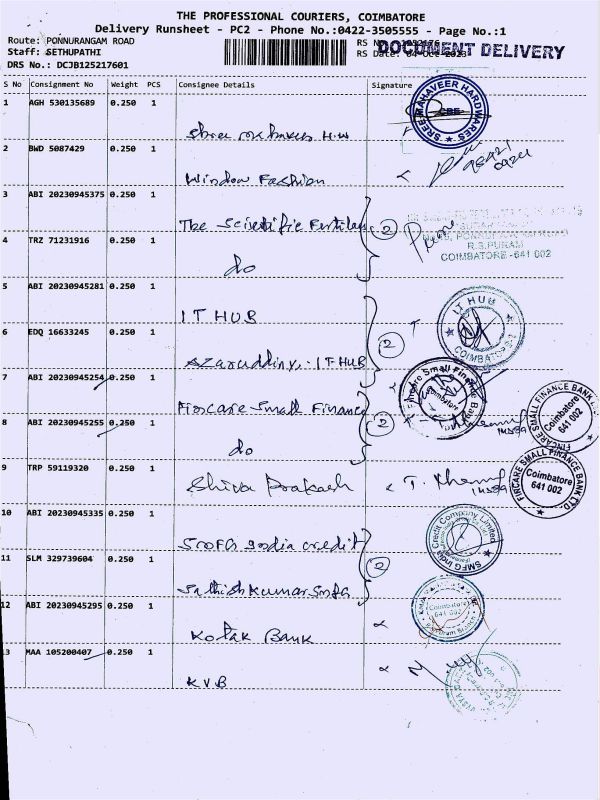 THE PROFESSIONAL COURIERS, COIMBATORE
Delivery Runsheet - PC2 - Phone No.:0422-3505555 - Page No.:1
Route: PONNURANGAM ROAD
Staff: SETHUPATHI
DRS No.: DCJB125217601
RS Date: 04-Oct-2023
DOCUMENT DELIVERY
S No Consignment No Weight PCS Consignee Details Signature
1 AGH 530135689 0.250 1
SREE MAHAVEER HARDWARES CBE
2 BWD 5087429 0.250 1
Window Fashion
3 ABI 20230945375 0.250 1
The Scientific Fertilizer 2
4 TRZ 71231916 0.250 1
do
R.S.PURAM
COIMBATORE -641 002
5 ABI 20230945281 0.250 1
IT HUB
IT HUB COIMBATORE-2
6 EDQ 16633245 0.250 1
Azaruddin, - IT HUB 2
7 ABI 20230945254 0.250 1
Fincare Small Finance 2
Fincare Small Finance Bank Coimbatore
8 ABI 20230945255 0.250 1
do
FINCARE SMALL FINANCE BANK LTD. Coimbatore 641 002
9 TRP 59119320 0.250 1
Shiva Prakash
FINCARE SMALL FINANCE BANK LTD. Coimbatore 641 002
10 ABI 20230945335 0.250 1
SMFG India credit 2
SMFG India Credit Company Limited
11 SLM 329739604 0.250 1
Sathish Kumar Smfg
12 ABI 20230945295 0.250 1
Kotak Bank
Coimbatore 641 002
13 MAA 105200407 0.250 1
KVB